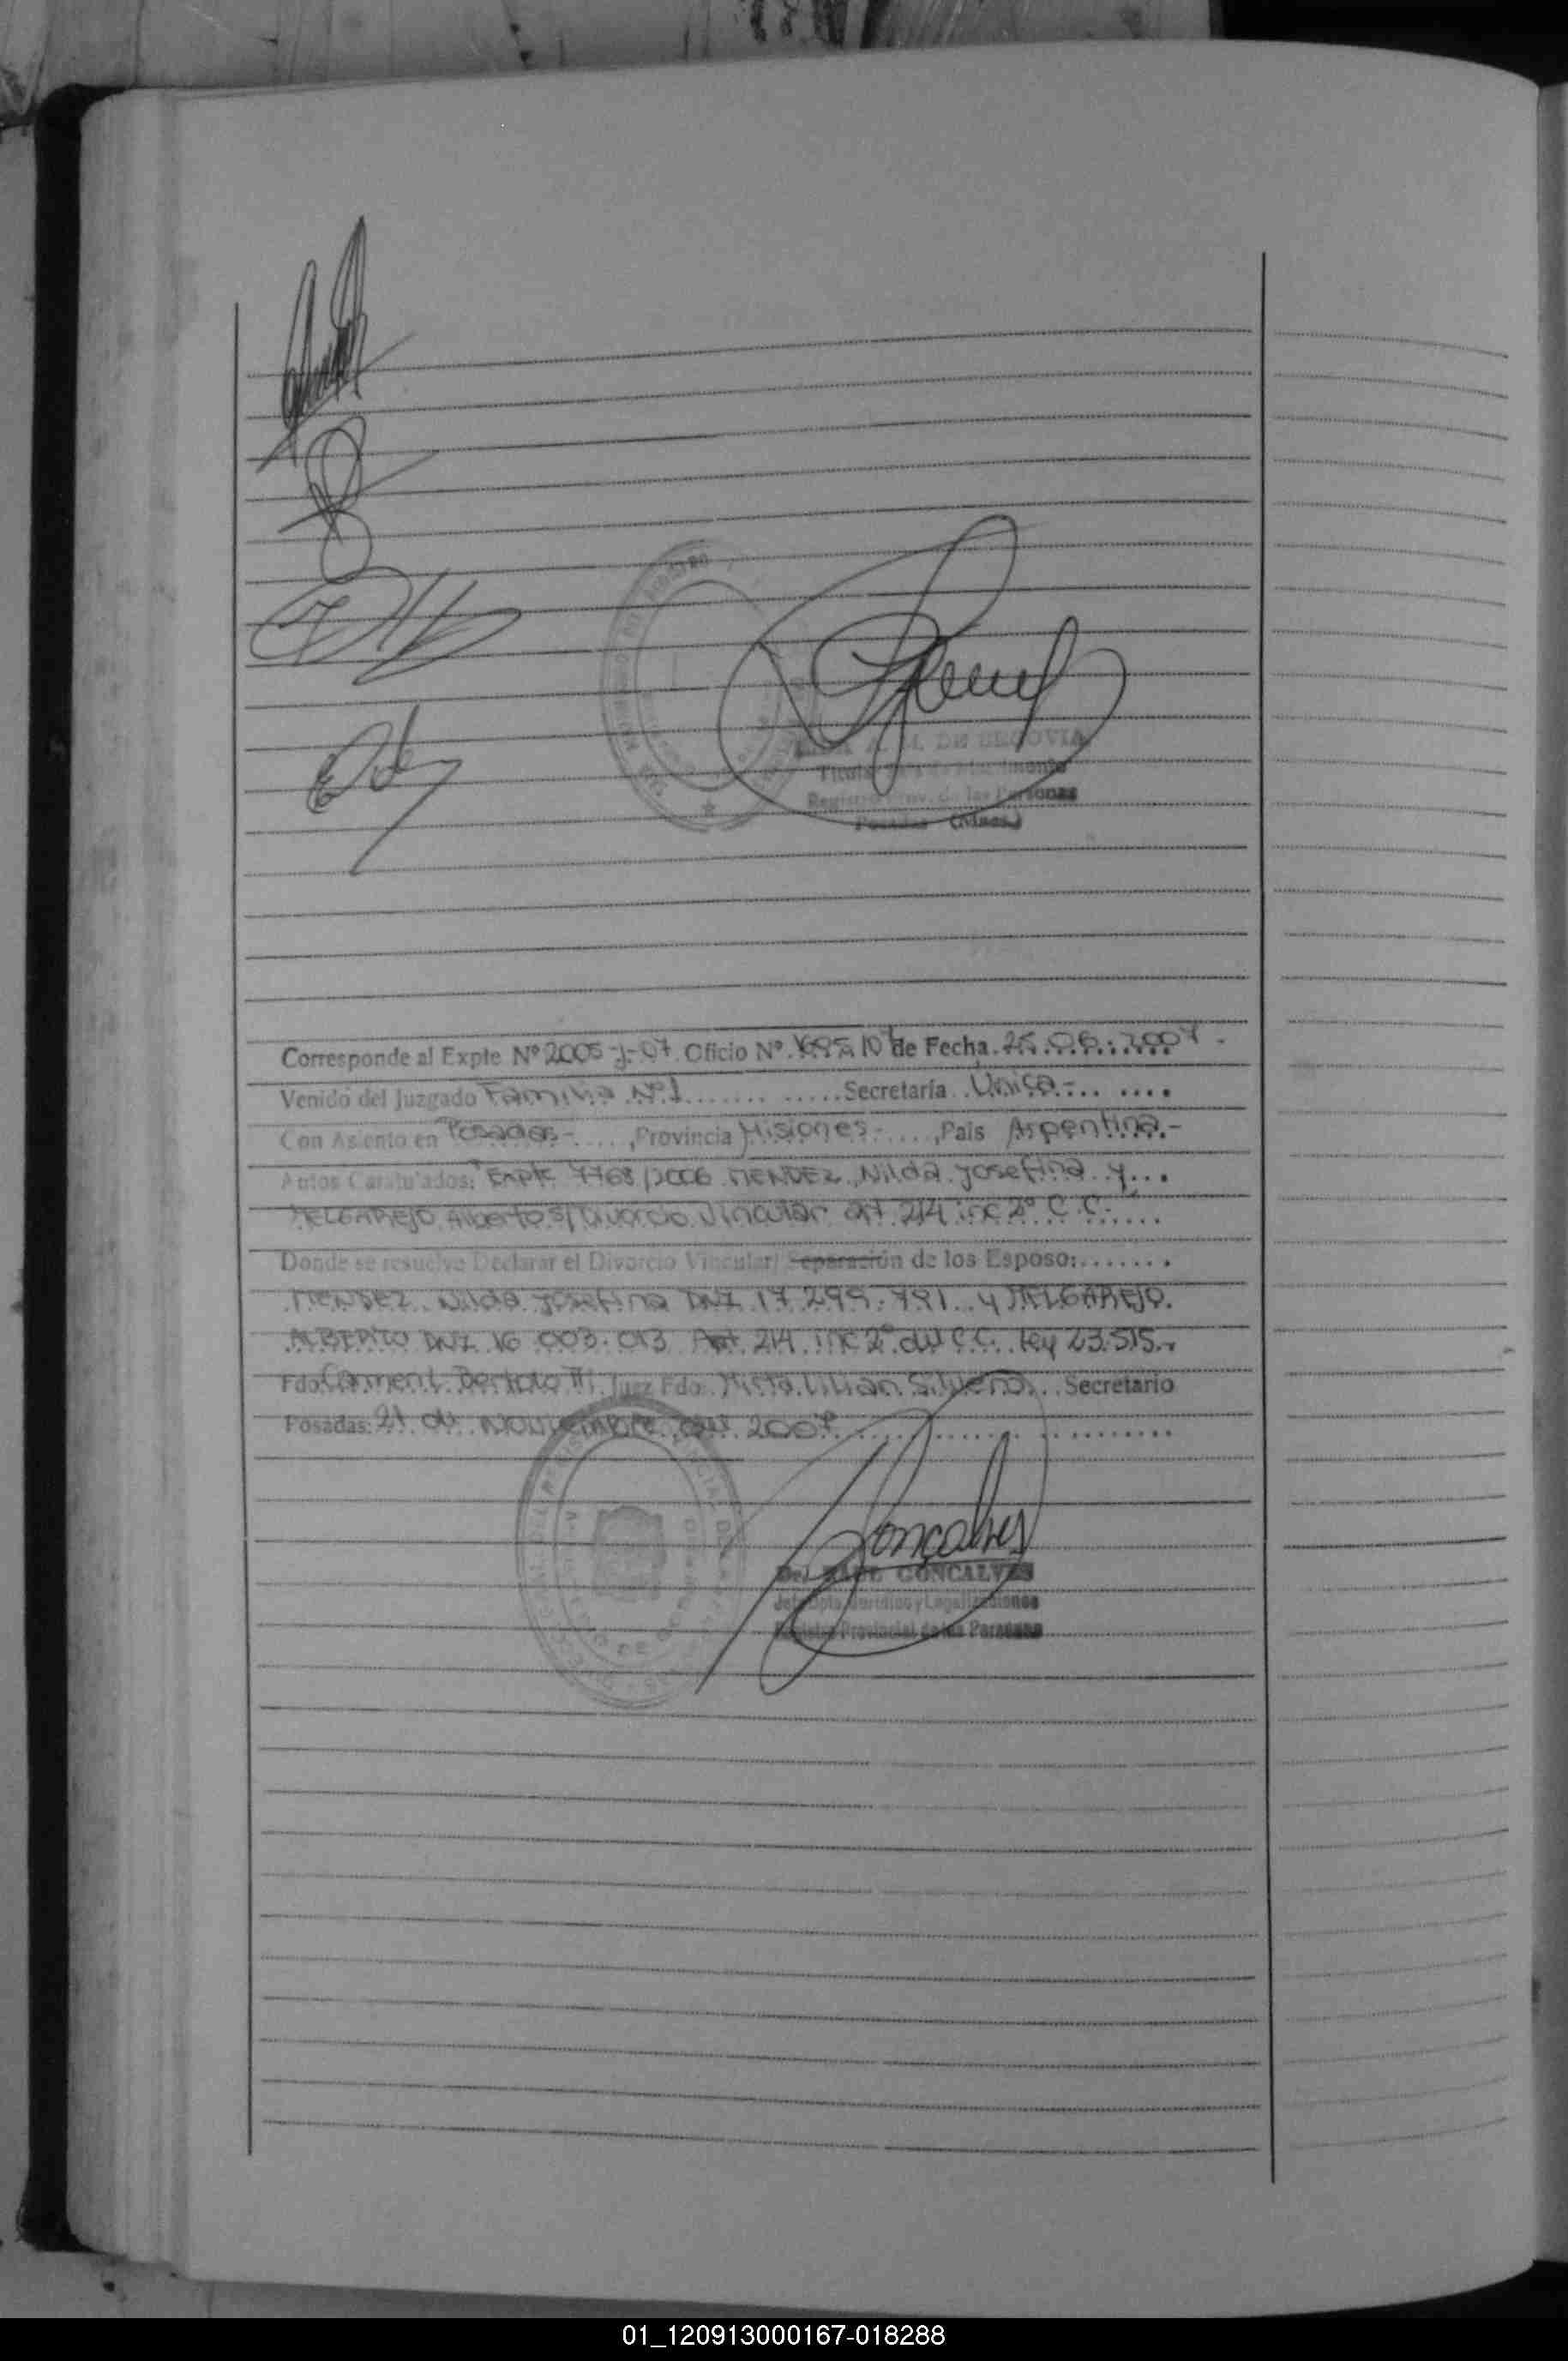 DE SEGOVIA
Registro Prov. de las Personas
Posadas (Mnes.)
Corresponde al Expte Nº 2005-J-07 Oficio Nº 1695/07 de Fecha 25.06.2007.-
Venido del Juzgado Familia Nº 1 Secretaría Unica.-
Con Asiento en Posadas-, Provincia Misiones-, País Argentina.-
Autos Caratulados: "Expte 7768/2006 MENDEZ, Nilda Josefina y
MELGAREJO Alberto s/ Divorcio Vincular art 214 inc 2º C.C."
Donde se resuelve Declarar el Divorcio Vincular/ Separación de los Esposo:
MENDEZ Nilda Josefina DNI 17.299.791 y MELGAREJO
ALBERTO DNI 16.003.013 Art 214 inc 2º del C.C. Ley 23.515.-
Fdo. Juez Fdo. Lilian Silvero Secretario
Posadas: 21 de Noviembre del 2007
Goncalves
RAUL GONCALVES
Jefe Dpto. Jurídico y Legalizaciones
Registro Provincial de las Personas
01_120913000167-018288